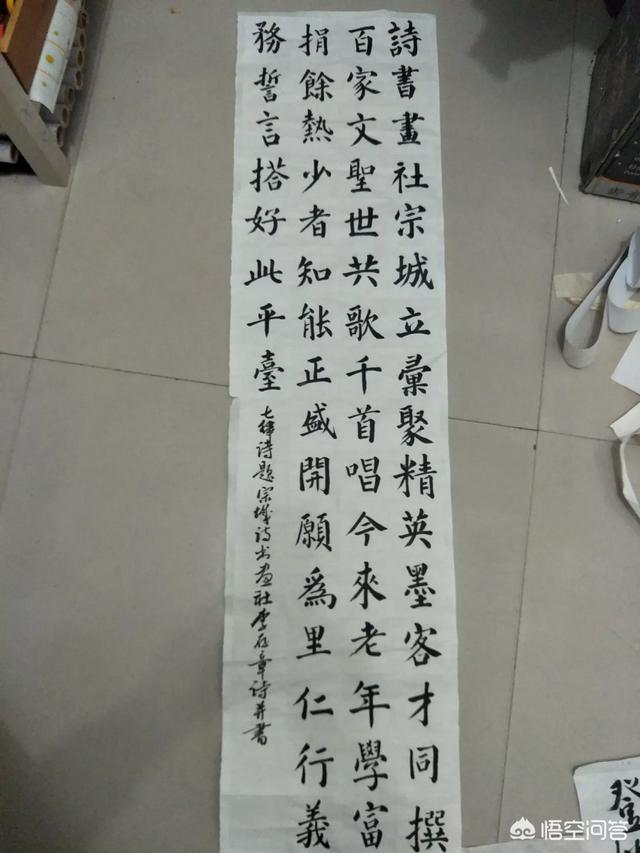 詩書畫社宗城立彙聚精英墨客才同撰
百家文聖世共歌千首唱今來老年學富
捐餘熱少者知能正盛開願爲里仁行義
務誓言搭好此平臺
七律诗题宗城诗书画社李存章诗并書
登
悟空问答